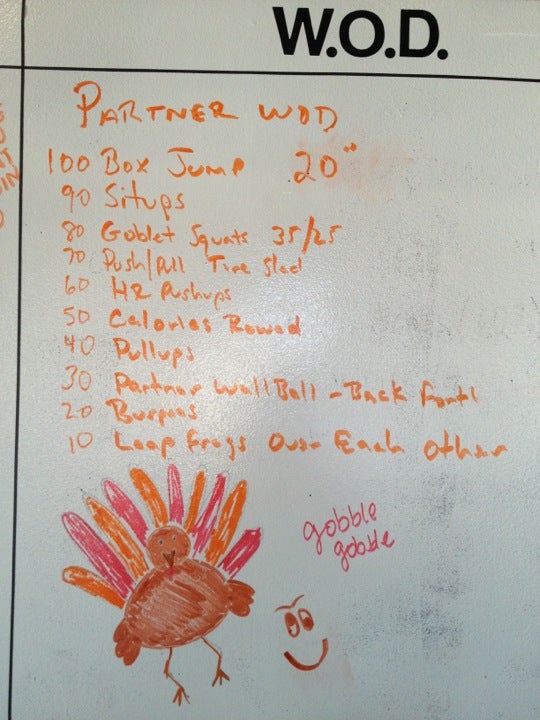 W.O.D.
PARTNER WOD
100 Box Jump 20"
90 Situps
80 Goblet Squats 35/25
70 Push/Pull Tire Sled
60 HR Pushups
50 Calories Rowed
40 Pullups
30 Partner Wall Ball - Back
20 Burpees
10 Leap Frogs Over Each Other
gobble
gobble